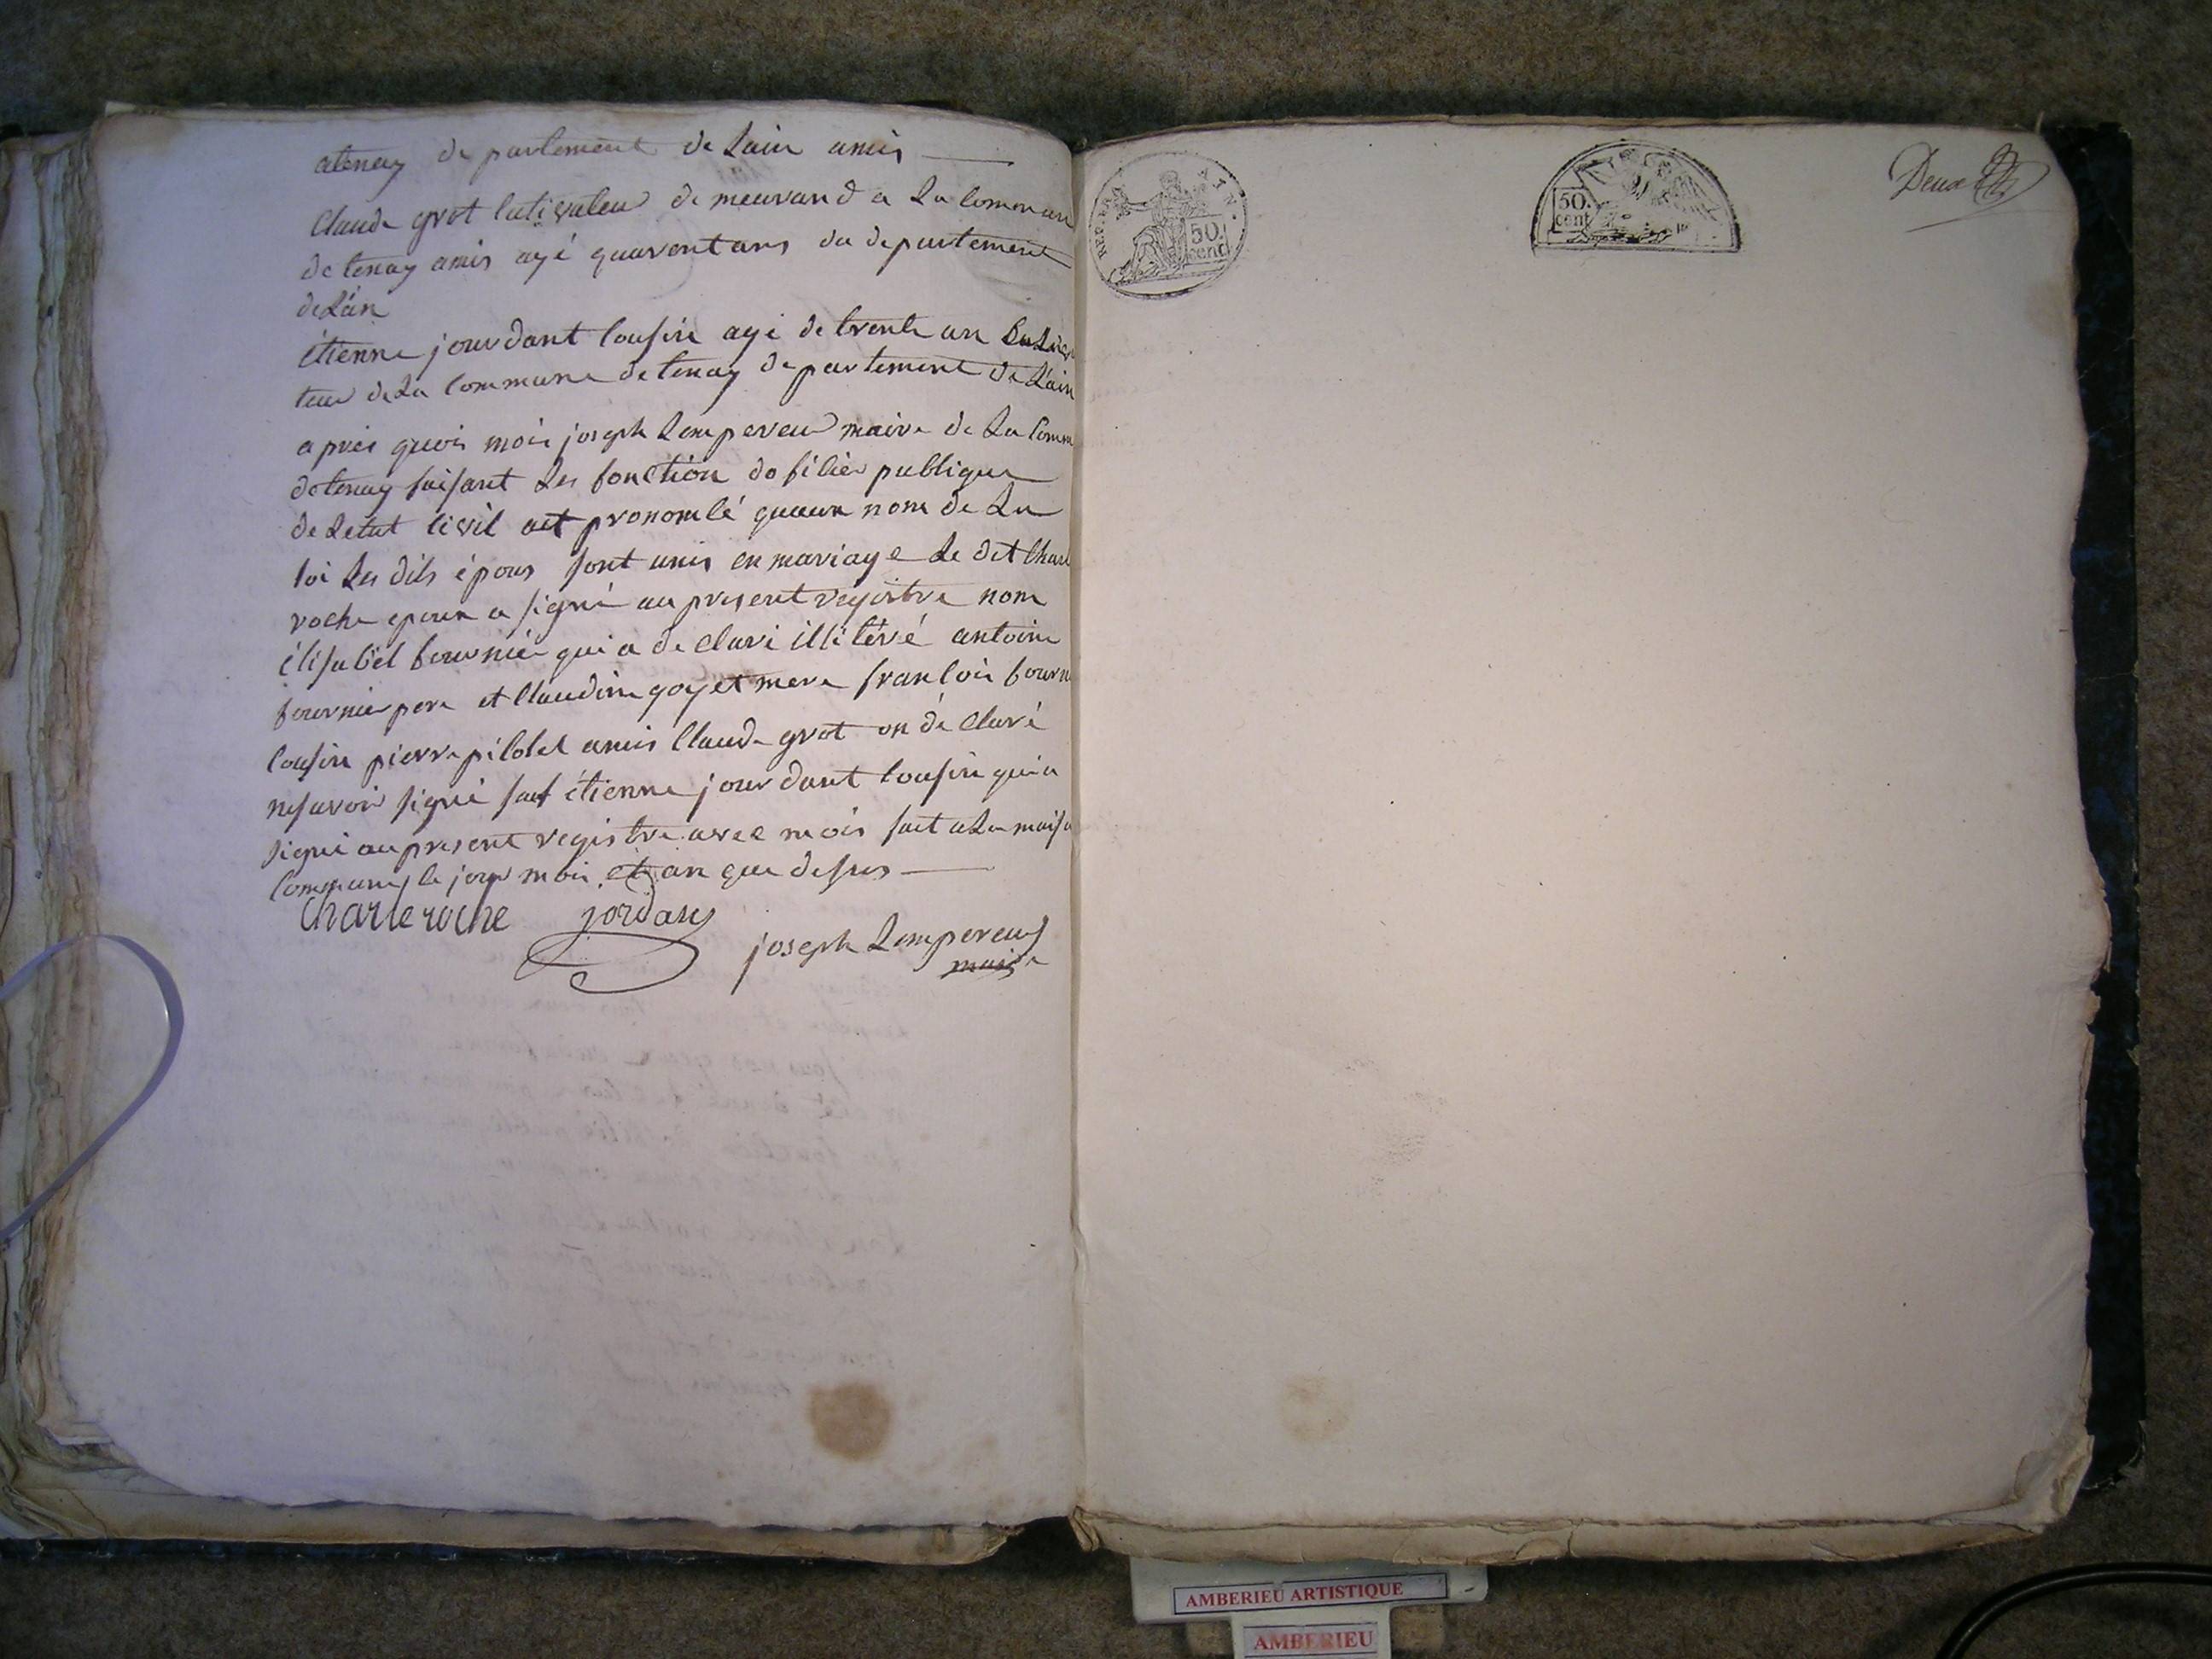 atenay de partement de Lain amis
Claude grot Cultivateu de meurand a La Commun
de tenay amis agé quarentans du departement
de Lain
étienne jourdant Cousin agé de trente an
teur de La Commune de tenay departement de Lain
a pres quois mois joseph Lempereur maire de La Comm
de tenay faisant Les fonction do ficier publique
de Letat Civil ait prononcé quaux nom de La
loi Les dits épous sont unis en mariage Le dit Charl
roche epoux a signé au present registre nom
élisabet fournier qui a de claré illitéré antoine
fournier pere et Claudine goyet mere francois fourn
Cousin pierre pilolet amis Claude grot on dé claré
nesavoir signé sauf étienne jourdant Cousin qui a
signé au present registre avec mois fait a La maiso
Commune le jour mois et an que dessus
Charle roche jordan
joseph Lempereur
maire
50.
cent
50.
cent
Deux
AMBERIEU ARTISTIQUE
AMBERIEU